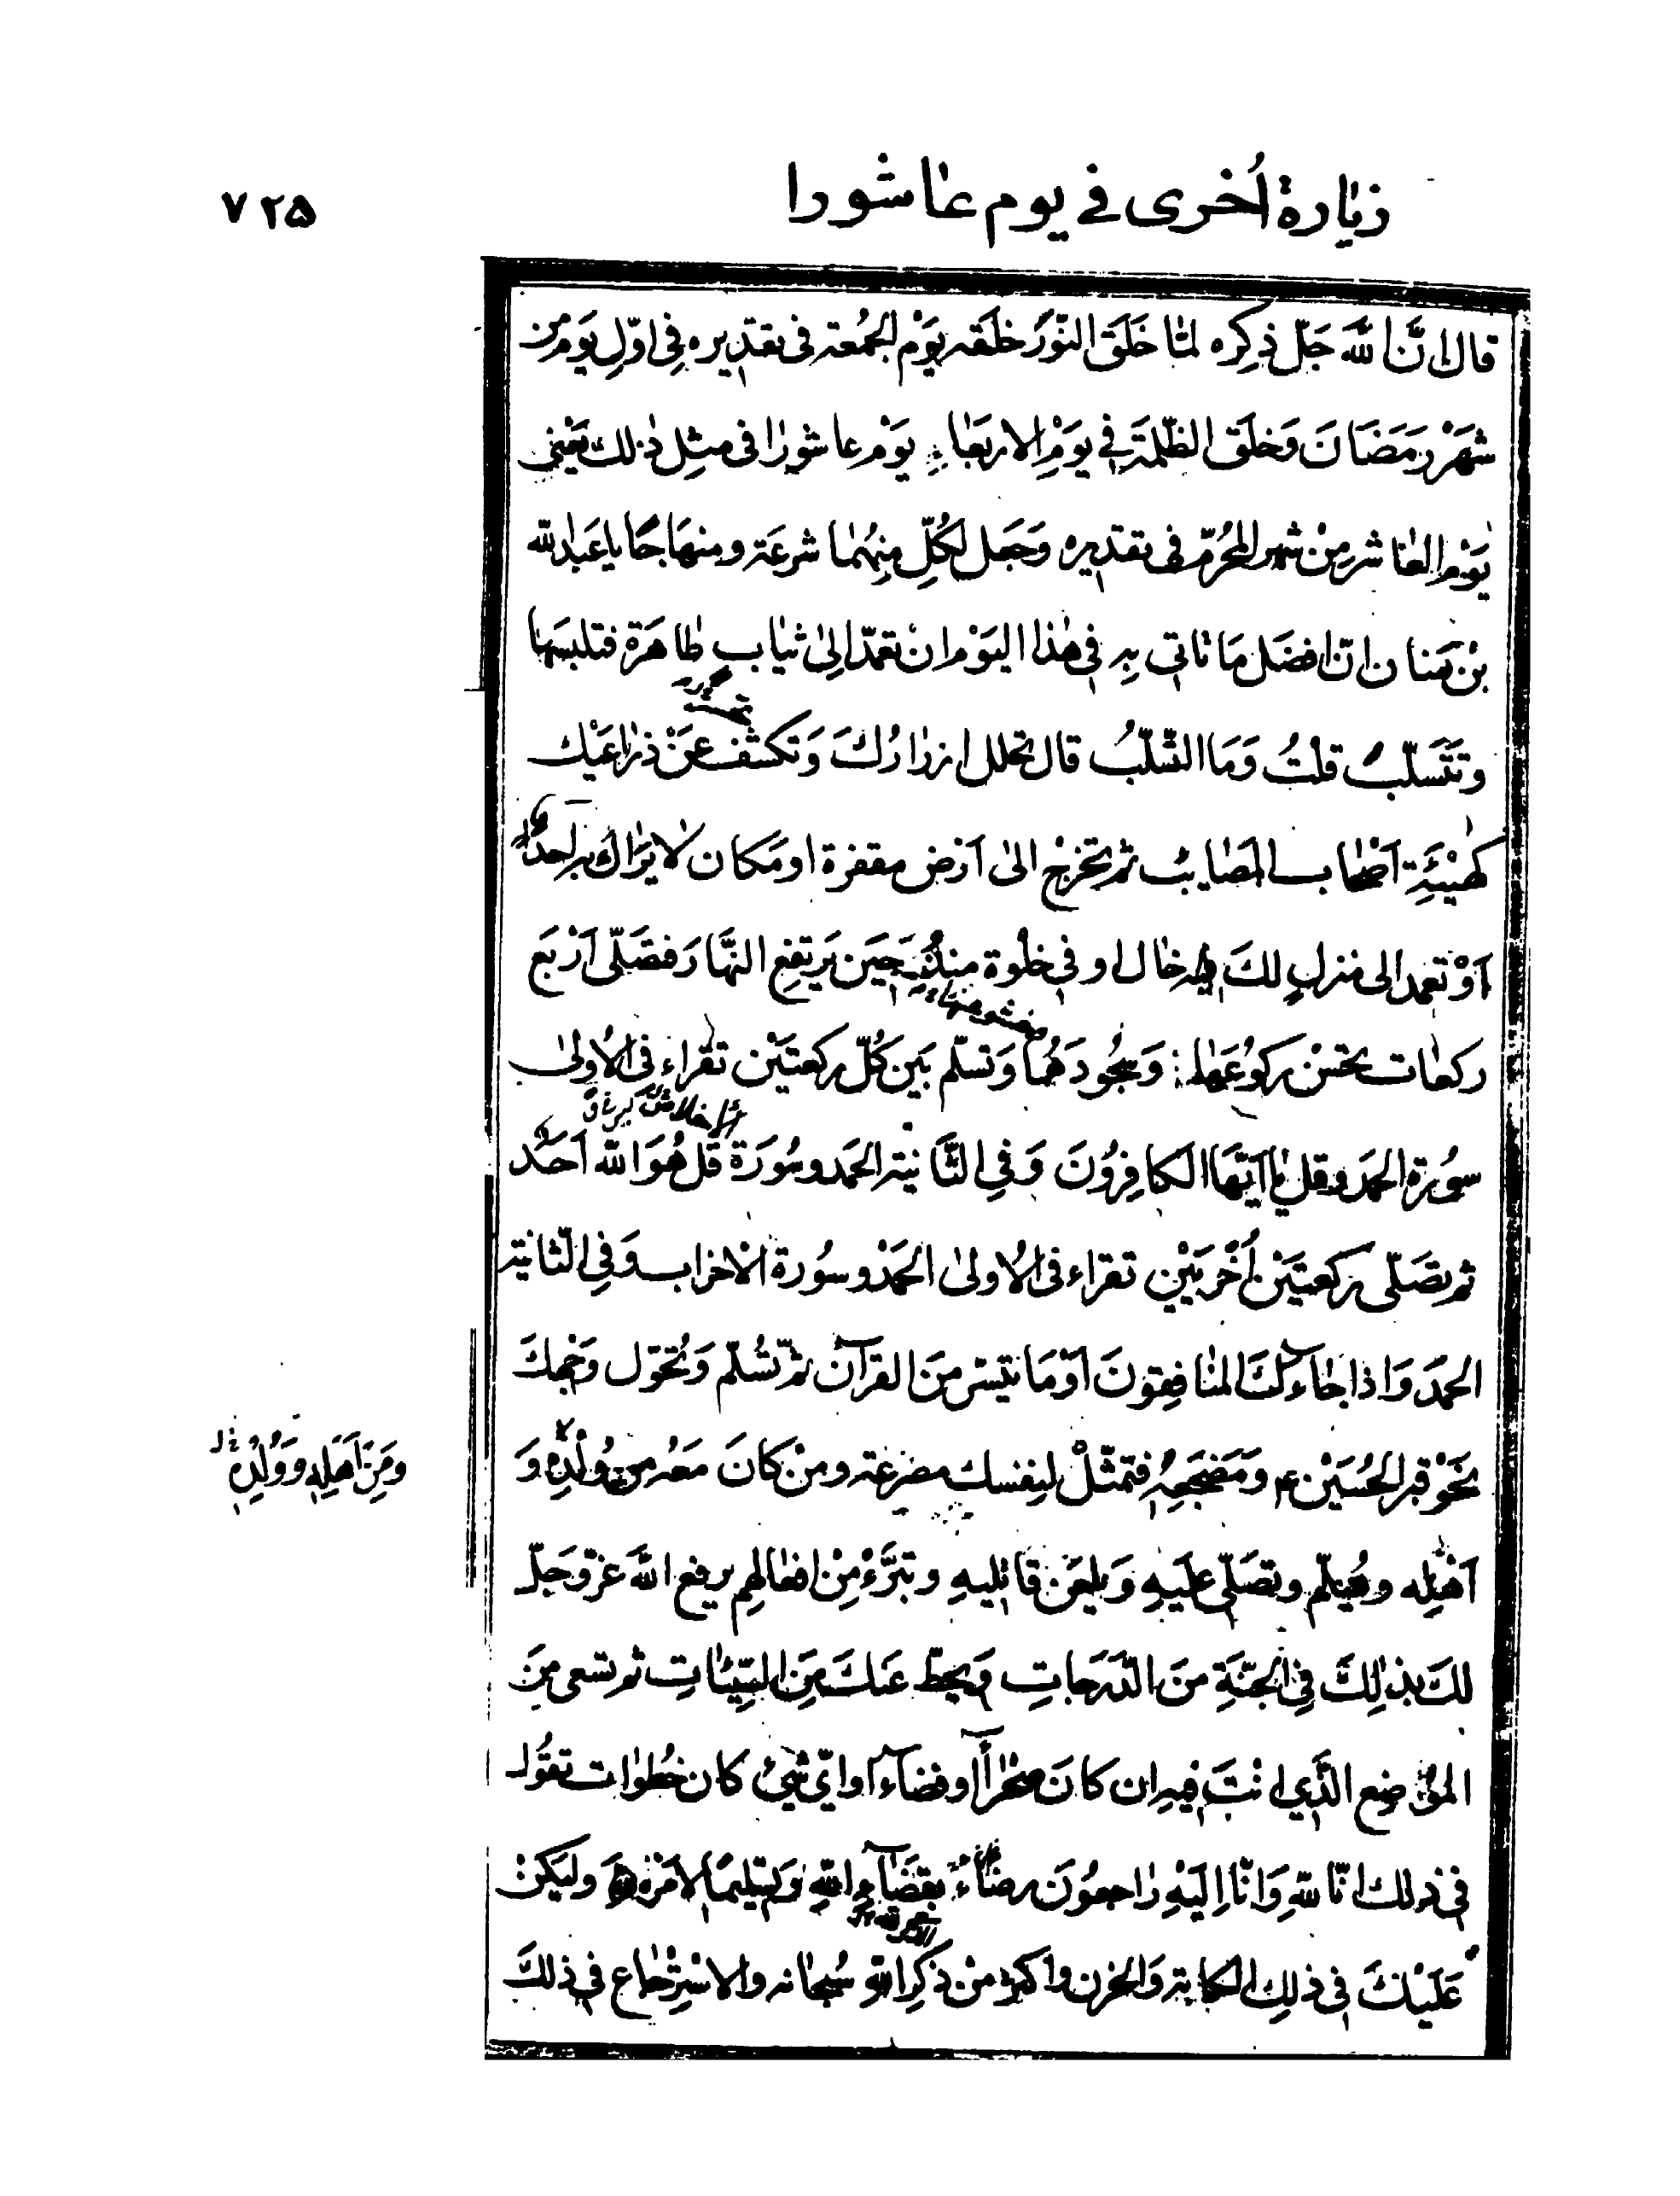 زيارة اُخرى في يوم عاشورا
٧٢۵
قال اِنَّ اللهَ جَلّ ذِكِره لمّا خَلَقَ النّورَ خلَقَه يَوْم الجمُعة فى تقدِيره فِى اوّلِ يَوم مِن
شَهْر رَمَضَانَ وَخلَق الظّلمَةَ فِى يَوْمِ الاربَعاءِ يَوْم عاشورٰا فى مثِلِ ذٰلك يَعْنى
يَوْم العٰاشر مِنْ شهر المحُرّم فى تقدِيره وَجَعل لكُلّ مِنهُمٰا شرعَة ومنهَاجًا يا عَبدالله
بْن سَنان اِنّ افضَل مَا تٰاتى بِه فى هٰذا اليَوْم ان تعمّد اِلىٰ ثيٰابٍ طٰاهَرة فتلبسَها
وتَتَسلّب قلتُ وَمَا التّسَلّبُ قال تحلل ازرٰارُكَ وَتكشف عَنْ ذرٰاعَيْك
كهَيْئَةِ اَصْحٰابِ المصَايبُ ثم تخرُج الىٰ اَرْض مقفرة او مَكان لا يَرٰاكَ بِه اَحدٌ
اَوْ تعمد الى منزلٍ لكَ خٰال او فى خلوة منذُ حِيَن يَرتفِع النهَّار فتصَلّى اَرْبَع
ركعٰات تحسْن ركوُعَهٰا وَسجُودَهُا وَتسلّم بَين كُلّ ركعتَيْن تقرٰاء فى الاُولىٰ
سوُرة الحمَد وقل يٰا اَيّهَا الكافِرُونَ وَفِى الثّانية الحمَد وسُورَة قُل هُوَ الله اَحَد
ثم تصَلّى ركعتَيْن اُخْرَيَيْنِ تقراء فى الاُولىٰ الحَمْد وسُورة الاَحْزاب وَفِى الثّانية
الحمَد وَاذا جٰاءكَ المنٰافِقونَ اَوْ مَا تيَسّر مِنَ القرآن ثم تُسَلّم وَتُحَوّل وَجْهكَ
نحَوْ قبر الحُسَيْن ع وَمَضجَعِهِ فتمثّلْ لنِفسك مصْرعَه ومنْ كانَ مَعَه مِن وُلْدِه وَ
اَهْلِه وتُسَلّم وتصَلّى عَلَيهِ وَتلعَن قاتِليهِ وتبَرَّءْ مِنْ افعٰالهِم يرفع اللهَ عَزّ وَجَلّ
لكَ بذٰلِكَ فِى الجَنّةِ منَ الدّرَجاتِ وَيحطّ عَنكَ مِنَ السَّيِّئٰاتِ ثم تسعى مِنَ
الموْضِع الذَّى انْتَ فيهِ ان كانَ صَحْرآًا او فضآءً او اىّ شىْءُ كان خُطوٰات تقوُل
فى ذلك انّا لِلّهِ وَانّا اِلَيْهِ رٰاجعوُنَ رضًا بقضَآءِ اللهِ وَتَسْليمًا لاَمْرِهِ وليَكنْ
عَلَيْكَ فى ذلِكِ الكابة وَالحزن واكثِرْ مِنْ ذِكِر اللهِ سُبحٰانه والاسْتِرْجٰاع فى ذلكَ
ومَنَ اَهَلِهِ وَوُلْدِهِ خ ل